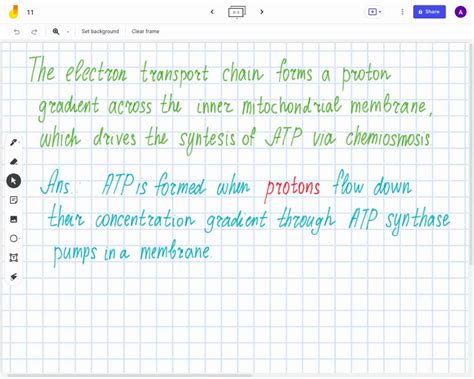 11
Set background Clear frame
Share
A
The electron transport chain forms a proton
gradient across the inner mitochondrial membrane,
which drives the syntesis of ATP via chemiosmosis.
Ans. ATP is formed when protons flow down
their concentration gradient through ATP synthase
pumps in a membrane.